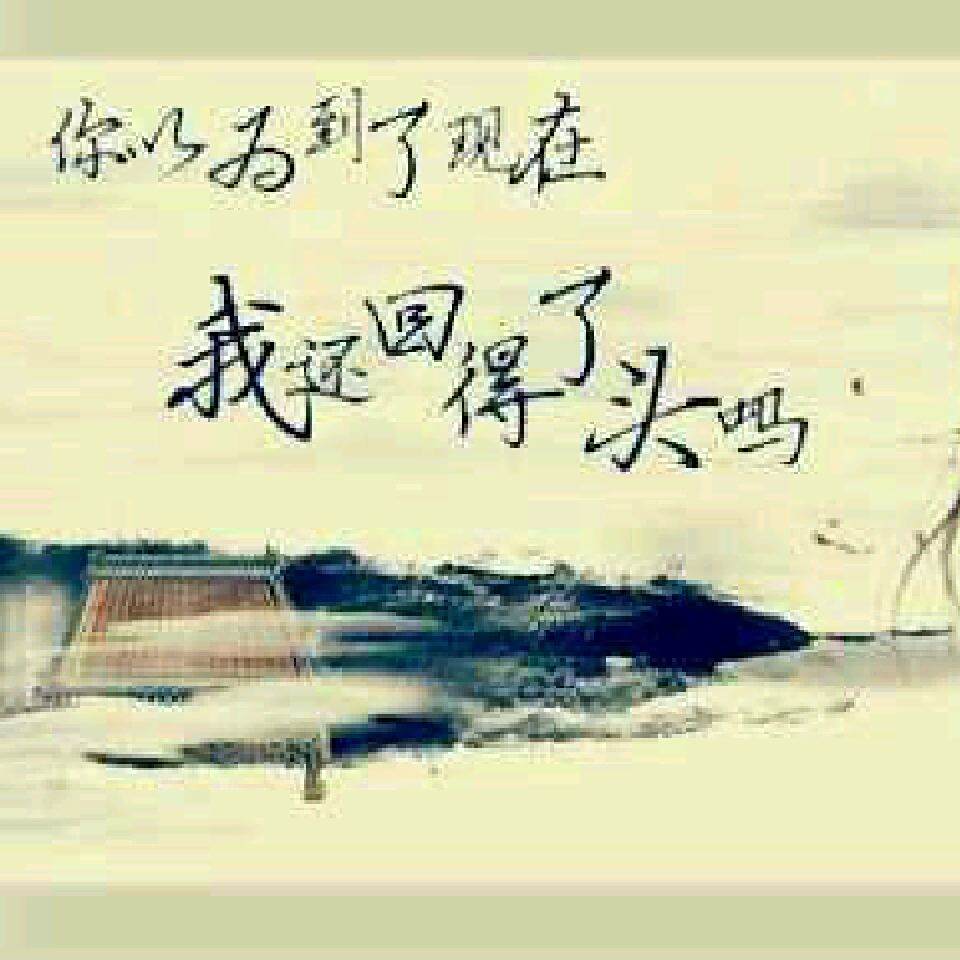 你以为到了现在
我还回得了头吗